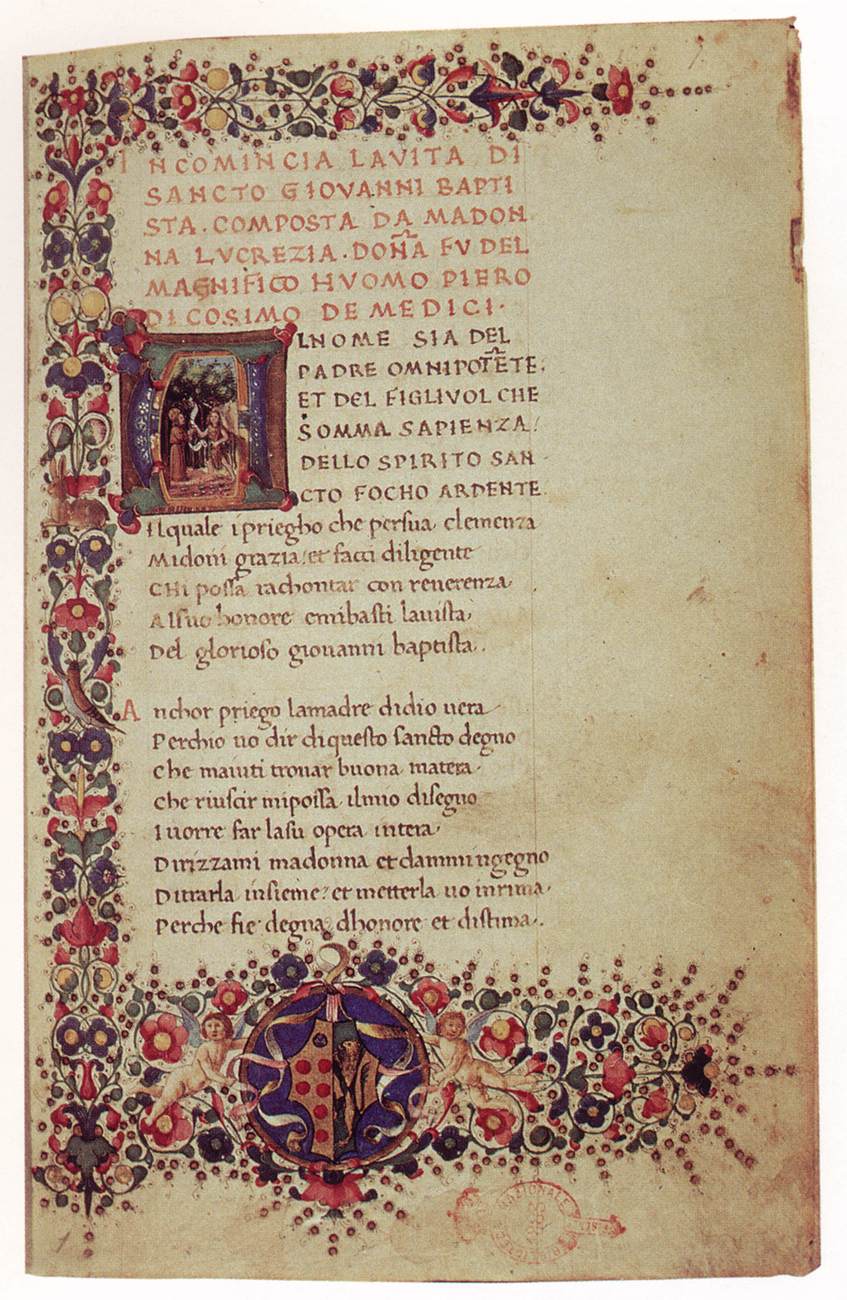 INCOMINCIA LAVITA DI
SANCTO GIOVANNI BAPTI
STA. COMPOSTA DA MADON
NA LVCREZIA. DOÑA FV DEL
MAGNIFICO HVOMO PIERO
DI COSIMO DE MEDICI.
LNOME SIA DEL
PADRE OMNIPOTE͂TE:
ET DEL FIGLIVOL CHE
SOMMA SAPIENZA:
DELLO SPIRITO SAN
CTO FOCHO ARDENTE.
Ilquale i priegho che persua clemenza
Midoni grazia: et facci diligente
CHi possa rachontar con reuerenza
Alsuo honore
Del glorioso giouanni baptista.
Anchor priego lamadre didio uera
Perchio uo dir diquesto sancto degno
Che maiuti trouar buona matera
Che riuscir mipossa ilmio disegno
I uorre far lasu opera intera
Dirizzami madonna et dammi ngegno
Ditrarla insieme: et metterla uo inrima
Perche fie degna dhonore et distima.
NAZIONALE
1